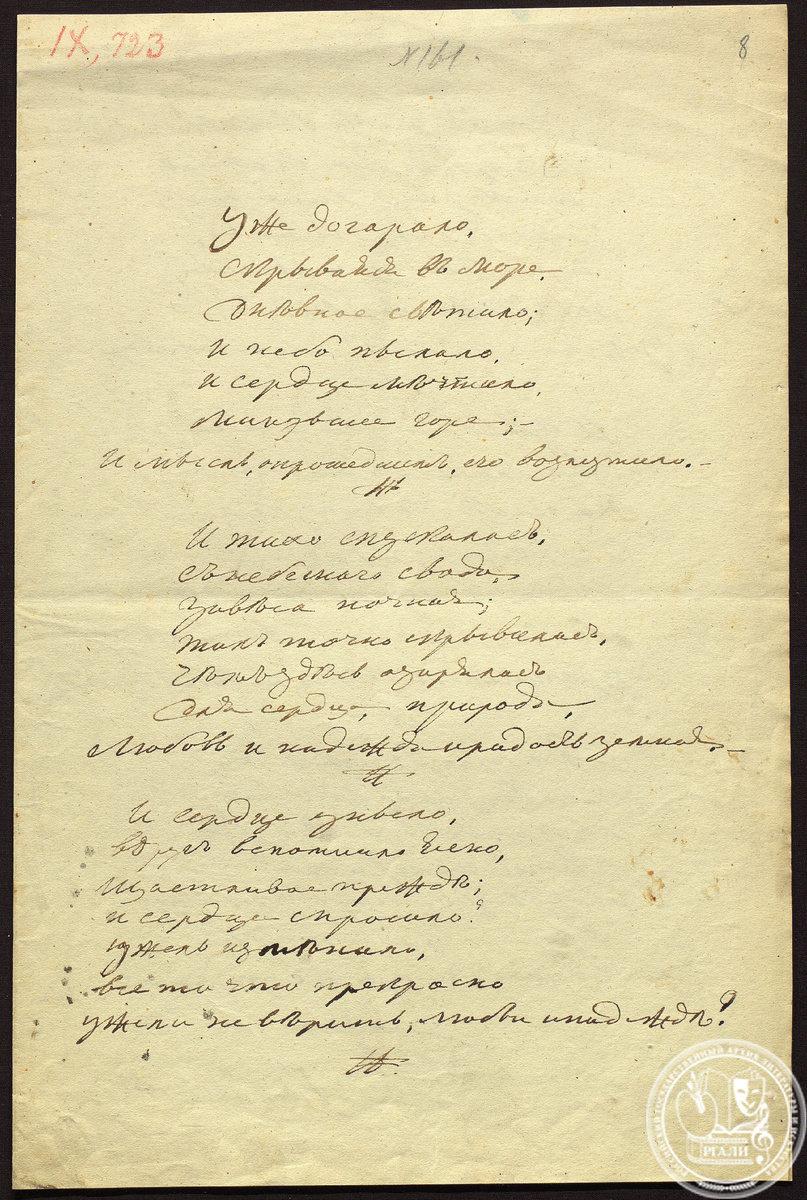 IX, 723
№161.
8
Уже догарало,
Скрывайся въ море,
Дневное свѣтило;
И небо пылало,
И сердце мѣчтало,
Минувшее горе;-
И мысль, опрошедшемъ, его возмутило.-
И тихо спускалась,
Сънебеснаго свода,
Завѣса ночная;
Такъ точно скрывалась,
Чѣмъ здѣсь озарялась
Для сердца, природа,
Любовь и надѣжда ирадость земная.-
И сердце уныло,
вдругъ вспомнило ясно,
Щастливое прѣждѣ;
и сердце спросило?
ужель измѣнило,
все то что прекрасно
ужели не вѣрить, любви инадѣждѣ?
РОССИЙСКИЙ ГОСУДАРСТВЕННЫЙ АРХИВ ЛИТЕРАТУРЫ И ИСКУССТВА
РГАЛИ